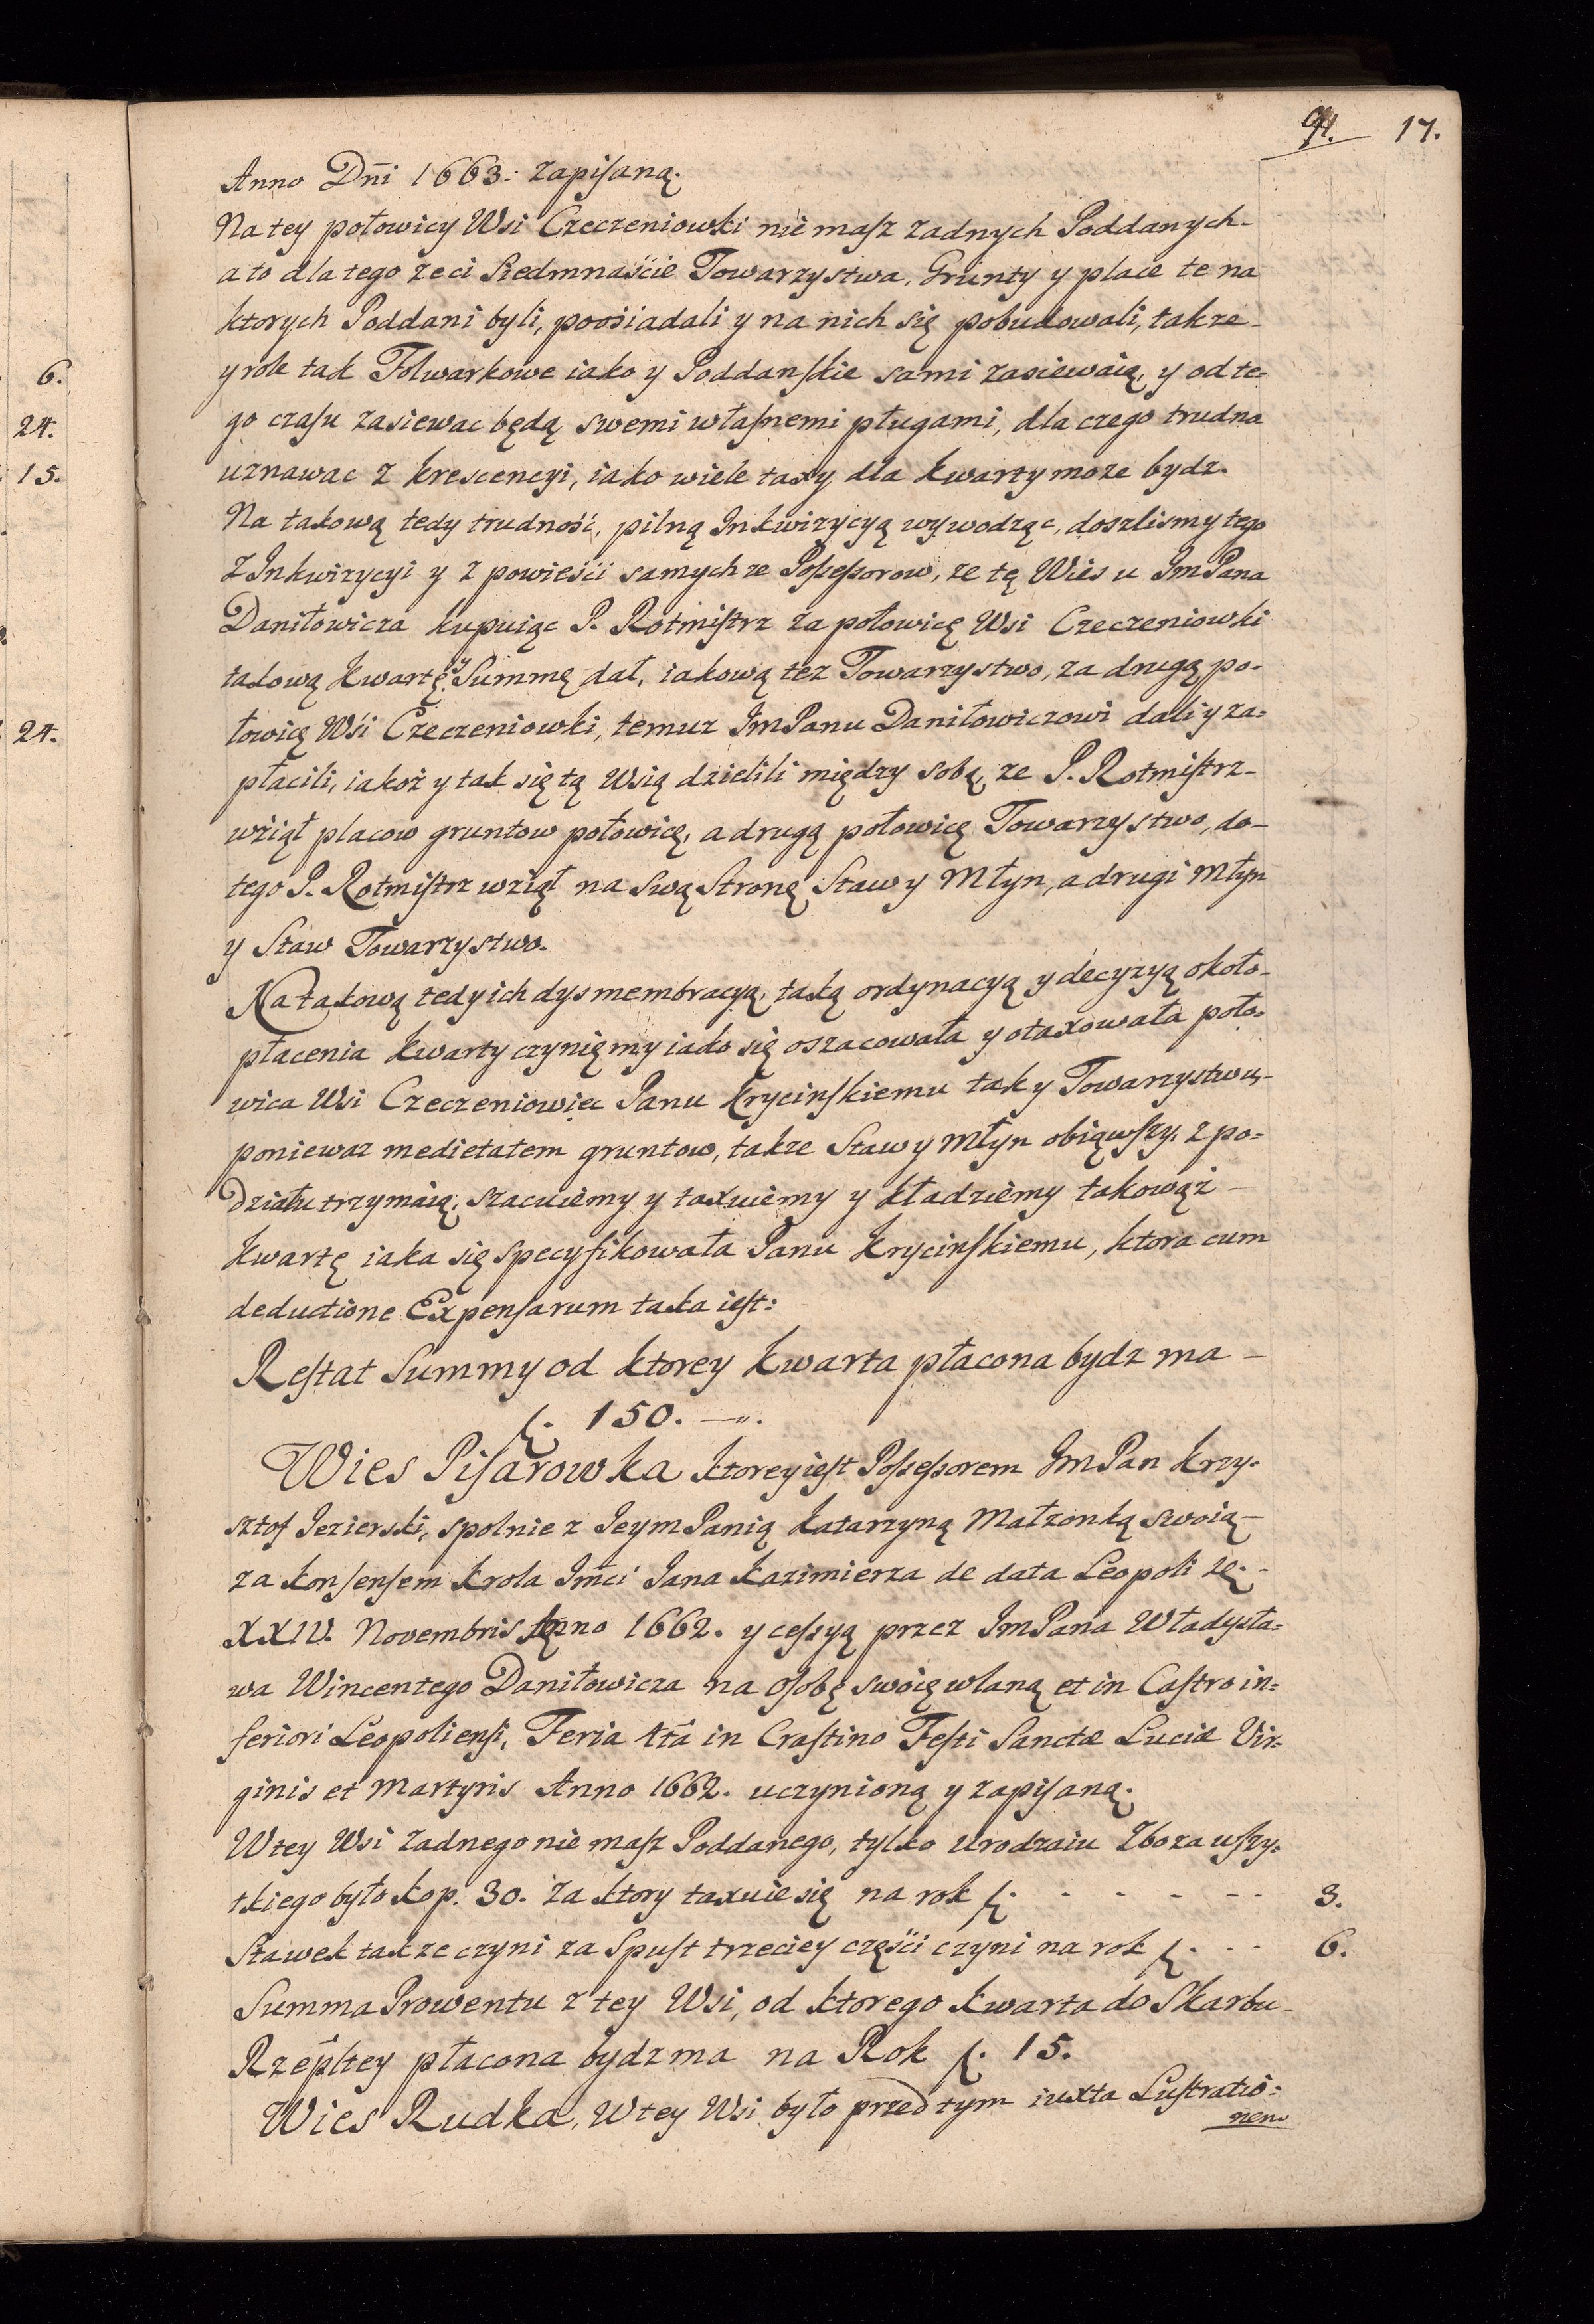 91. 17.
Anno Dn̄i 1663. zapisaną.
Na tey połowicy Wsi Czeczeniowki nie masz zadnych Poddanych-
a to dla tego ze ci Siedmnaście Towarzystwa, Grunty y place te na
ktorych Poddani byli, poosiadali y na nich się pobudowali, takze-
y role tak Folwarkowe iako y Poddanskie sami zasiewaią, y od te=
go czasu zasiewac będą swemi własnemi pługami, dla czego trudno
uznawac z krescencyi, iako wiele taxy dla kwarty moze bydz.
Na takową tedy trudność, pilną Inkwizycyą wywodząc, doszlismy tego
Z Inkwizycyi y z powieści samych ze Possessorow, ze tę Wies u JmPana
Daniłowicza kupuiąc P. Rotmistrz za połowicę Wsi Czeczeniowki
takową kwartę y Summę dał, iakową tez Towarzystwo, za drugą po-
łowicę Wsi Czeczeniowki, temuz JmPanu Daniłowiczowi dali y za=
płacili, iakoż y tak się tą Wsią dzielili między sobą, ze P. Rotmistrz-
wziął placow gruntow połowicę, a drugą połowicę Towarzystwo, do-
tego P. Rotmistrz wziął na Swą Stronę Staw y Młyn, a drugi Młyn
y Staw Towarzystwo.
Na takową tedy ich dysmembracyą, taką ordynacyą y decyzyą około-
płacenia kwarty czynięmy iako się oszacowała y otaxowała poło-
wica Wsi Czeczeniowiec Panu Krycinskiemu tak y Towarzystwu,-
poniewaz medietatem gruntow, takze Staw y Młyn obiąwszy, z po=
działu trzymaią, szacuiemy y taxuiemy y kładziemy takowąż-
kwartę iaka się specyfikowała Panu Krycinskiemu, ktora cum
deductione Expensarum taka iest:
Restat Summy od ktorey kwarta płacona bydz ma -
f. 150. —„.
Wies Pisarowka ktorey iest Possessorem JmPan Krzy-
sztof Jezierski, spolnie z JeymPanią Katarzyną Małzonką swoią-
za konsensem Krola Jm̄ci Jana Kazimierza de data Leopoli ze.-
XXIV. Novembris Anno 1662. y cessyą przez JmPana Władysła=
wa Wincentego Daniłowicza na osobę swoię wlaną et in Castro in=
feriori Leopoliensi, Feria 4ta in Crastino Festi Sanctæ Luciæ Vir-
ginis et Martyris Anno 1662. uczynioną y zapisaną.
W tey Wsi zadnego nie masz Poddanego, tylko Urodzaiu Zboza wszy-
tkiego było kop. 30. za ktory taxuie się na rok f. - - - - - - 3.
Stawek takze czyni za Spust trzeciey części czyni na rok f. - - 6.
Summa Prowentu z tey Wsi, od ktorego kwarta do Skarbu-
Rzeplltey płacona bydz ma na Rok f. 15.
Wies Rudka, W tey Wsi było przed tym iuxta Lustratio=
nem
6.
24.
15.
24.